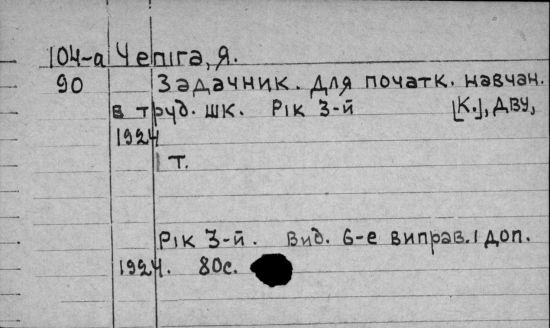 104-а Чепіга, Я.
90 Задачник. Для початк. навчан.
в труд. шк. Рік 3-й [К.], ДВУ,
1924
1 т.
Рік 3-й. Вид. 6-е виправ. і доп.
1924. 80с.